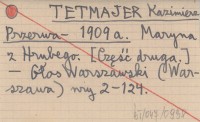 TETMAJER Kazimierz
Przerwa- 1909 a. Maryna
z Hrubego. [Część druga.]
- Głos Warszawski (War-
szawa) nry 2-124.